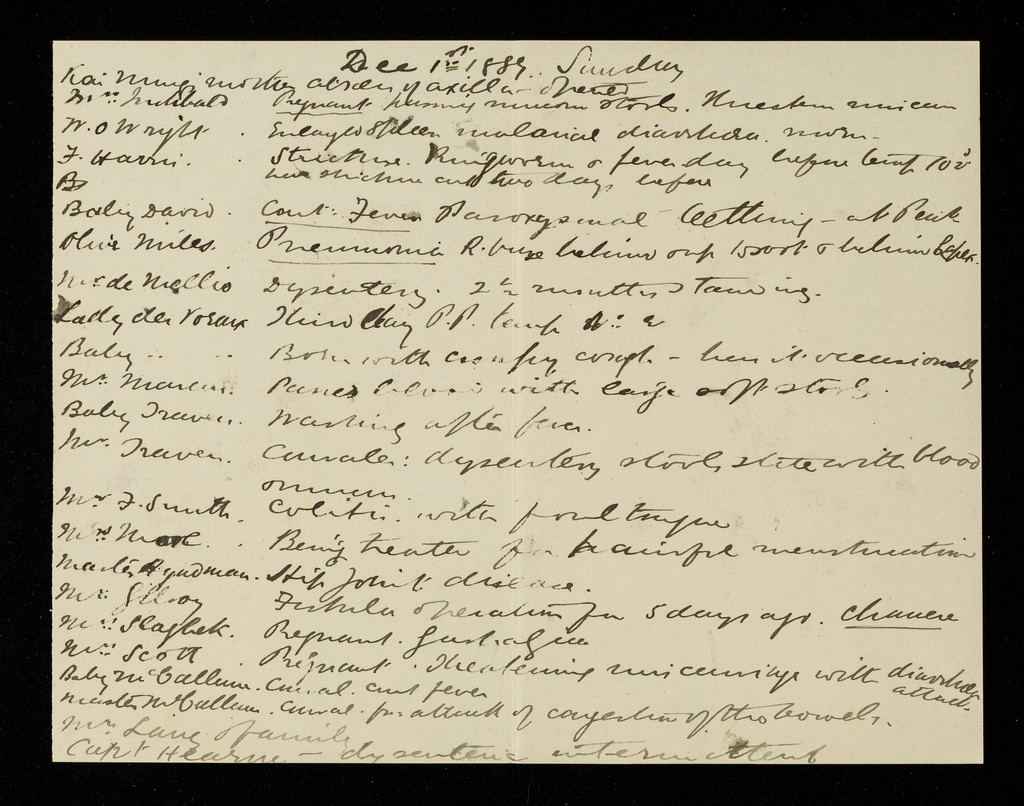 Dec 1st 1889. Sunday
Kai Ming's mother abscess of axilla - opened
Mrs Pregnant passing mucous stools.
W. O Wright. Enlarged Spleen malarial diarrhoea.
F. Harris. Stricture. Ringworm & fever day before temp 103
stricture cut two days before
B
Baby David. Cont: Fever Paroxysmal teething - at Peak
Olive Miles. Pneumonia R. base behind & behind L apex.
Mr de Mello Dysentery. 2½ months standing.
Lady des Voeux Third day P.P. temp
Baby " " Born with croupy cough - has it occasionally
Mr. Passes blood with large soft stools.
Baby Traven. Wasting after fever.
Mr. Traven. Convales: dysentery stools still with blood
& mucus.
Mr F. Smith. Colitis. with foul tongue
Mrs Being treated for painful menstruation
Master Hyndman. Hip Joint disease.
Mr. Gilroy Fistula operation for 5 days ago. Chancre
Mrs. Slaghek. Pregnant. Gastralgia
Mrs. Scott. Pregnant. Threatening miscarriage with diarrhoea
attack
Baby McCallum. Conval. cont fever
Master McCallum. Conval. fr. attack of congestion of the bowels.
Mrs Lane & family
Capt Hearne - dysenteric intermittent